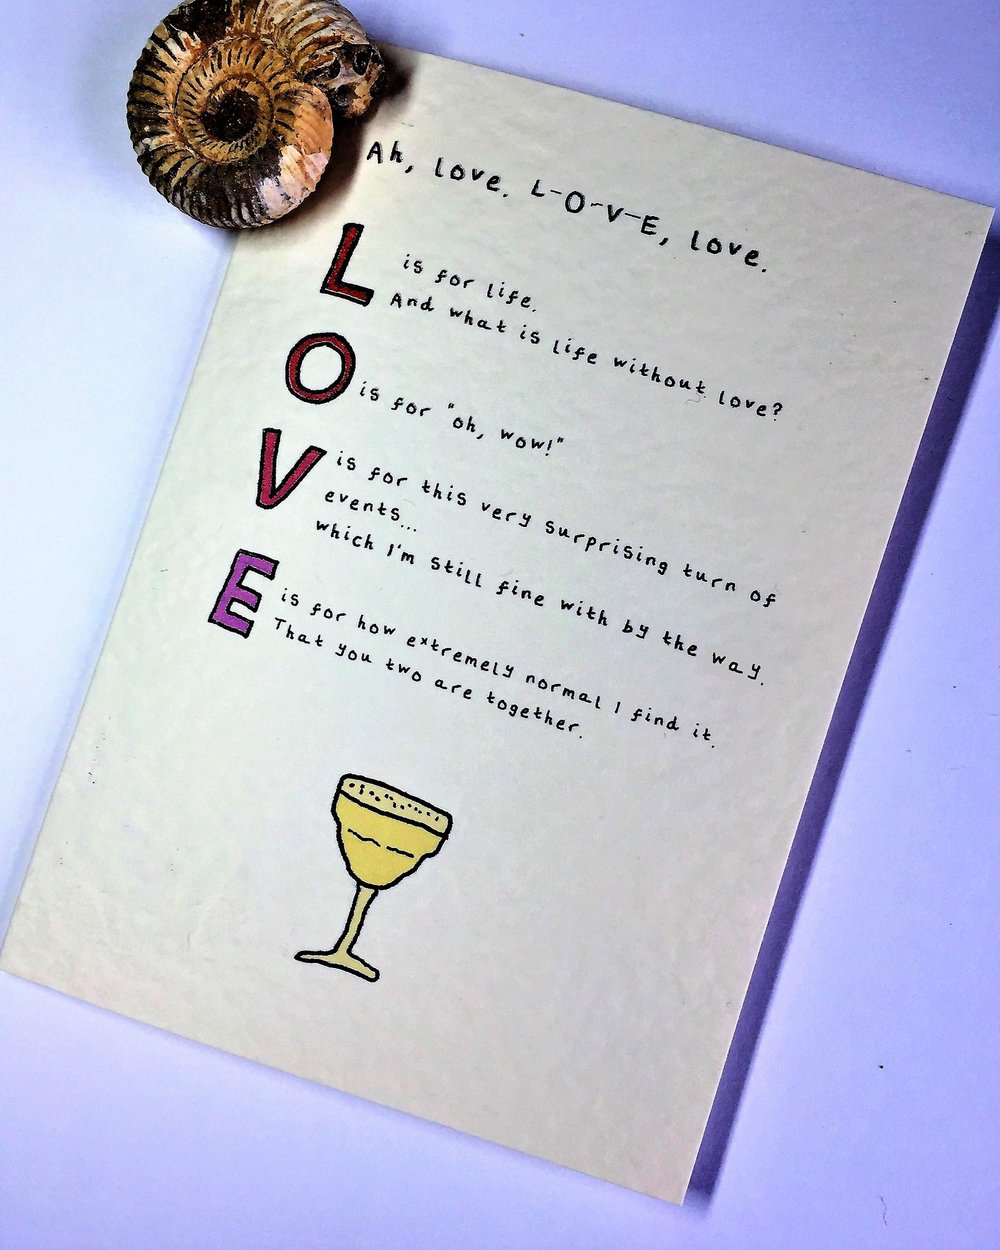 Ah, love. L-O-V-E, love.
L is for life.
And what is life without love?
O is for "oh, wow!"
V is for this very surprising turn of
events...
which I'm still fine with by the way.
E is for how extremely normal I find it.
That you two are together.